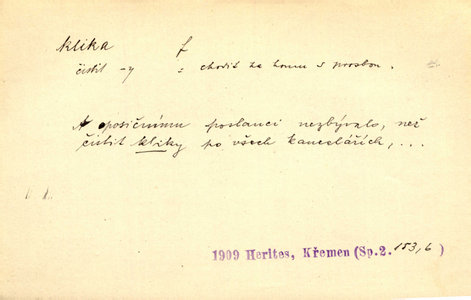 klika f
čistit -y : chodit za komu s prosbou.
A oposičnímu poslanci nezbývalo, než
čistit kliky po všech kancelářích, ...
1909 Herites, Křemen (Sp.2. 153,6 )